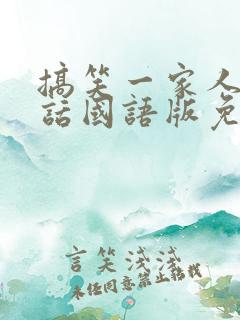 搞笑一家人
話國語版免
言笑淺淺
未经同意禁止转载